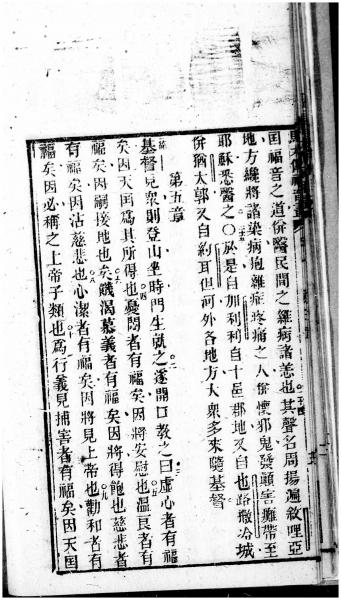 囯福音之道併醫民間之纏病諸恙也其聲名周揚遍敘哩亞
地方纔將諸染病抱雜症疼痛之人併懷邪鬼發顛害癱帶至
耶穌悉醫之〇於是自加利利自十邑郡地又自也路撒冷城
併猶大郭又自約耳但河外各地方大衆多來隨基督
第五章
基督見衆則登山坐時門生就之遂開口教之曰虛心者有福
矣因天囯為其所得也憂悶者有福矣因將安慰也温良者有
福矣因嗣接地也饑渴慕義者有福矣因將得飽也慈悲者
有福矣因沾慈悲也心潔者有福矣因將見上帝也勸和者有
福矣因必稱之上帝子類也為行義見捕害者有福矣因天囯